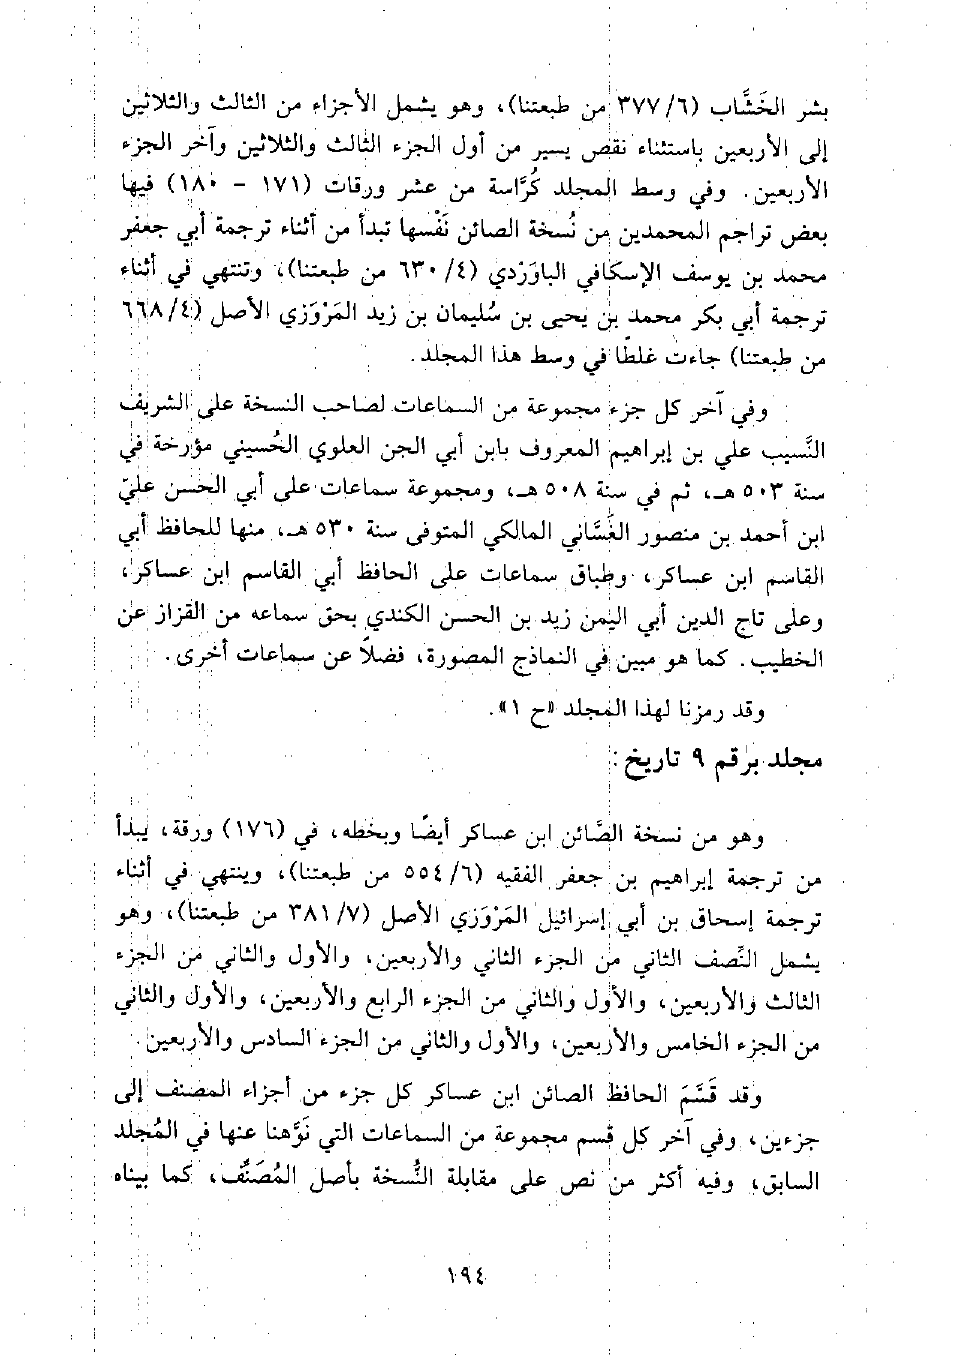 بشر الخَشَّاب (٣٧٧/٦ من طبعتنا)، وهو يشمل الأجزاء من الثالث والثلاثين
إلى الأربعين باستثناء نقص يسير من أول الجزء الثالث والثلاثين وآخر الجزء
الأربعين. وفي وسط المجلد كُرَّاسة من عشر ورقات (١٧١ - ١٨٠) فيها
بعض تراجم المحمدين من نُسخة الصائن نَفْسها تبدأ من أثناء ترجمة أبي جعفر
محمد بن يوسف الإسكافي الباوَرْدي (٦٣٠/٤ من طبعتنا)، وتنتهي في أثناء
ترجمة أبي بكر محمد بن يحيى بن سُليمان بن زيد المَرْوَزي الأصل (٦٦٨/٤
من طبعتنا) جاءت غلطًا في وسط هذا المجلد.
وفي آخر كل جزء مجموعة من السماعات لصاحب النسخة على الشريف
النَّسيب علي بن إبراهيم المعروف بابن أبي الجن العلوي الحُسيني مؤرخة في
سنة ٥٠٣ هـ، ثم في سنة ٥٠٨ هـ، ومجموعة سماعات على أبي الحسن عليّ
ابن أحمد بن منصور الغَسَّاني المالكي المتوفى سنة ٥٣٠ هـ، منها للحافظ أبي
القاسم ابن عساكر، وطباق سماعات على الحافظ أبي القاسم ابن عساكر،
وعلى تاج الدين أبي اليمن زيد بن الحسن الكندي بحق سماعه من القزاز عن
الخطيب. كما هو مبين في النماذج المصورة، فضلاً عن سماعات أخرى.
وقد رمزنا لهذا المجلد «ح ١».
مجلد برقم ٩ تاريخ:
وهو من نسخة الصَّائن ابن عساكر أيضًا وبخطه، في (١٧٦) ورقة، يبدأ
من ترجمة إبراهيم بن جعفر الفقيه (٥٥٤/٦ من طبعتنا)، وينتهي في أثناء
ترجمة إسحاق بن أبي إسرائيل المَرْوَزي الأصل (٣٨١/٧ من طبعتنا)، وهو
يشمل النِّصف الثاني من الجزء الثاني والأربعين، والأول والثاني من الجزء
الثالث والأربعين، والأول والثاني من الجزء الرابع والأربعين، والأول والثاني
من الجزء الخامس والأربعين، والأول والثاني من الجزء السادس والأربعين.
وقد قَسَّمَ الحافظ الصائن ابن عساكر كل جزء من أجزاء المصنف إلى
جزءين، وفي آخر كل قسم مجموعة من السماعات التي نَوَّهنا عنها في المُجلد
السابق، وفيه أكثر من نص على مقابلة النُّسخة بأصل المُصَنِّف، كما بيناه
١٩٤